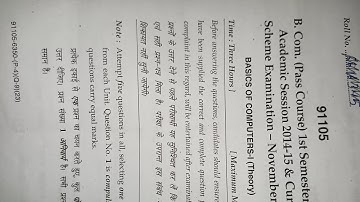 Roll No.
91105
B. Com. (Pass Course) 1st Semester
Academic Session 2014-15 & Cur
Scheme Examination – Novembe
BASICS OF COMPUTERS-I (Theory)
Time : Three Hours ] [ Maximum M
Before answering the questions, candidates should ensure
have been supplied the correct and complete question
complaint in this regard, will be entertained after examinat
प्रश्नों के उत्तर देने से पहले परीक्षार्थी यह सुनिश्चित कर लें कि
शिकायत नहीं सुनी जायेगी।
Note : Attempt five questions in all, selecting one
from each Unit. Question No. 1 is compul
questions carry equal marks.
प्रत्येक इकाई से एक प्रश्न का चयन करते हुए, कुल
उत्तर दीजिए। प्रश्न संख्या 1 अनिवार्य है। सभी
समान हैं।